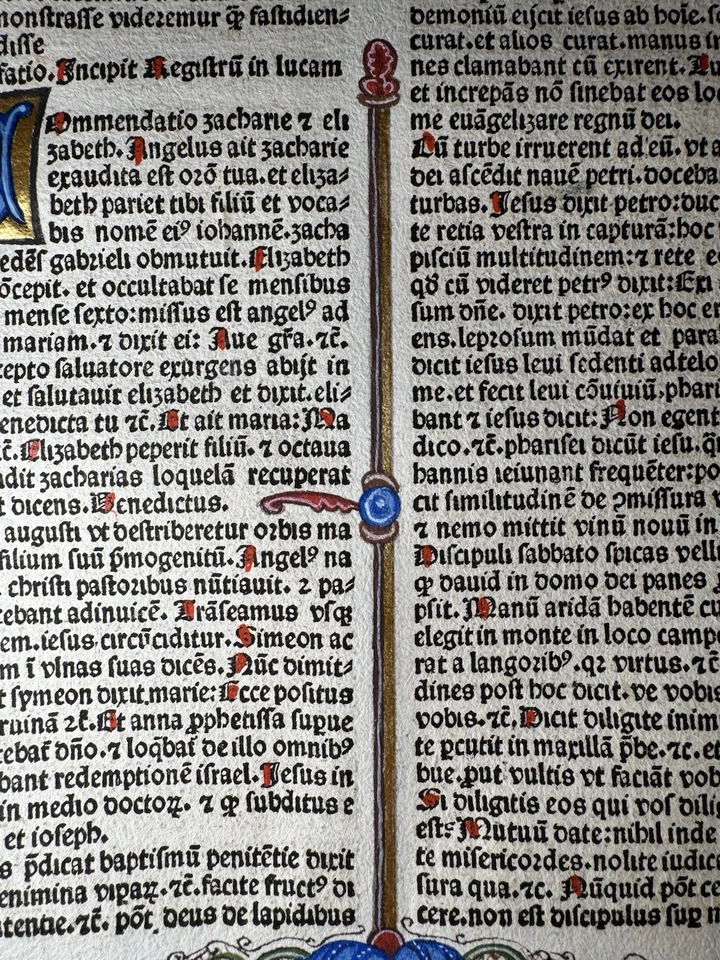 monstrasse videremur qꝫ fastidien⸗
disse
fatio. Incipit Registrū in lucam
Ommendatio zacharie ⁊ eli
zabeth. Angelus ait zacharie
exaudita est orō tua. et eliza⸗
beth pariet tibi filiū et voca⸗
bis nomē eiꝰ iohannē. zacha
gabrieli obmutuit. Elizabeth
ōcepit. et occultabat se mensibus
mense sexto: missus est angelꝰ ad
mariam. ⁊ dixit ei: Aue gr̄a. ⁊c̄.
cepto saluatore exurgens abijt in
et salutauit elizabeth et dixit. eli⸗
enedicta tu ⁊c̄. Et ait maria: Ma
c̄. Elizabeth peperit filiū. ⁊ octaua
dit zacharias loquelā recuperat
t dicens. Benedictus.
augusti vt describeretur orbis ma
filium suū p̄mogenitū. Angelꝰ na
christi pastoribus nūtiauit. ⁊ pa⸗
cebant adinuicē. Trāseamus vsqꝫ
em. iesus circūciditur. Simeon ac
m ī vlnas suas dicēs. Nūc dimit⸗
t symeon dixit marie: Ecce positus
ruinā ⁊c̄. Et anna ꝓphetissa supue
cebat̄ dn̄o. ⁊ loq̄bat̄ de illo omnibꝰ
bant redemptionē israel. Jesus in
in medio doctoꝝ. ⁊ qꝫ subditus e
et ioseph.
s p̄dicat baptismū penitētie dixit
enimina vipaꝝ. ⁊c̄. facite fructꝰ di
tentie. ⁊c̄. pōt deus de lapidibus
demoniū eijcit iesus ab hoīe. s
curat. et alios curat. manus in
nes clamabant cū exirent. Lu
et increpās nō sinebat eos loq
me euāgelizare regnū dei.
Cū turbe irruerent ad eū. vt a
dei ascēdit nauē petri. doceba
turbas. Jesus dixit petro: duc
te retia vestra in capturā: hoc
pisciū multitudinem: ⁊ rete
qđ cū videret petrꝰ dixit: Exi
sum dn̄e. dixit petro: ex hoc
ens. leprosum mūdat et para
dicit iesus leui sedenti ad telo
me. et fecit leui cōuiuiū. phari
bant ⁊ iesus dicit: Non egent
dico. ⁊c̄. pharisei dicūt iesu. q̄
hannis ieiunant frequēter: po
cit similitudinē de ꝯmissura v
⁊ nemo mittit vinū nouū in
Discipuli sabbato spicas vell
qꝫ dauid in domo dei panes
psit. Manū aridā habentē cu
elegit in monte in loco camp
rat a langoribꝰ. qꝛ virtus. ⁊c̄
dines post hoc dicit. ve vobis
vobis. ⁊c̄. Dicit diligite inim
te pcutit in maxillā p̄be. ⁊c. et
bue. put vultis vt faciāt vob
Si diligitis eos qui vos dili
estꝭ Mutuū date: nihil inde
te misericordes. nolite iudic
sura qua. ⁊c. Nūquid pōt ce
cere. non est discipulus suꝑ m